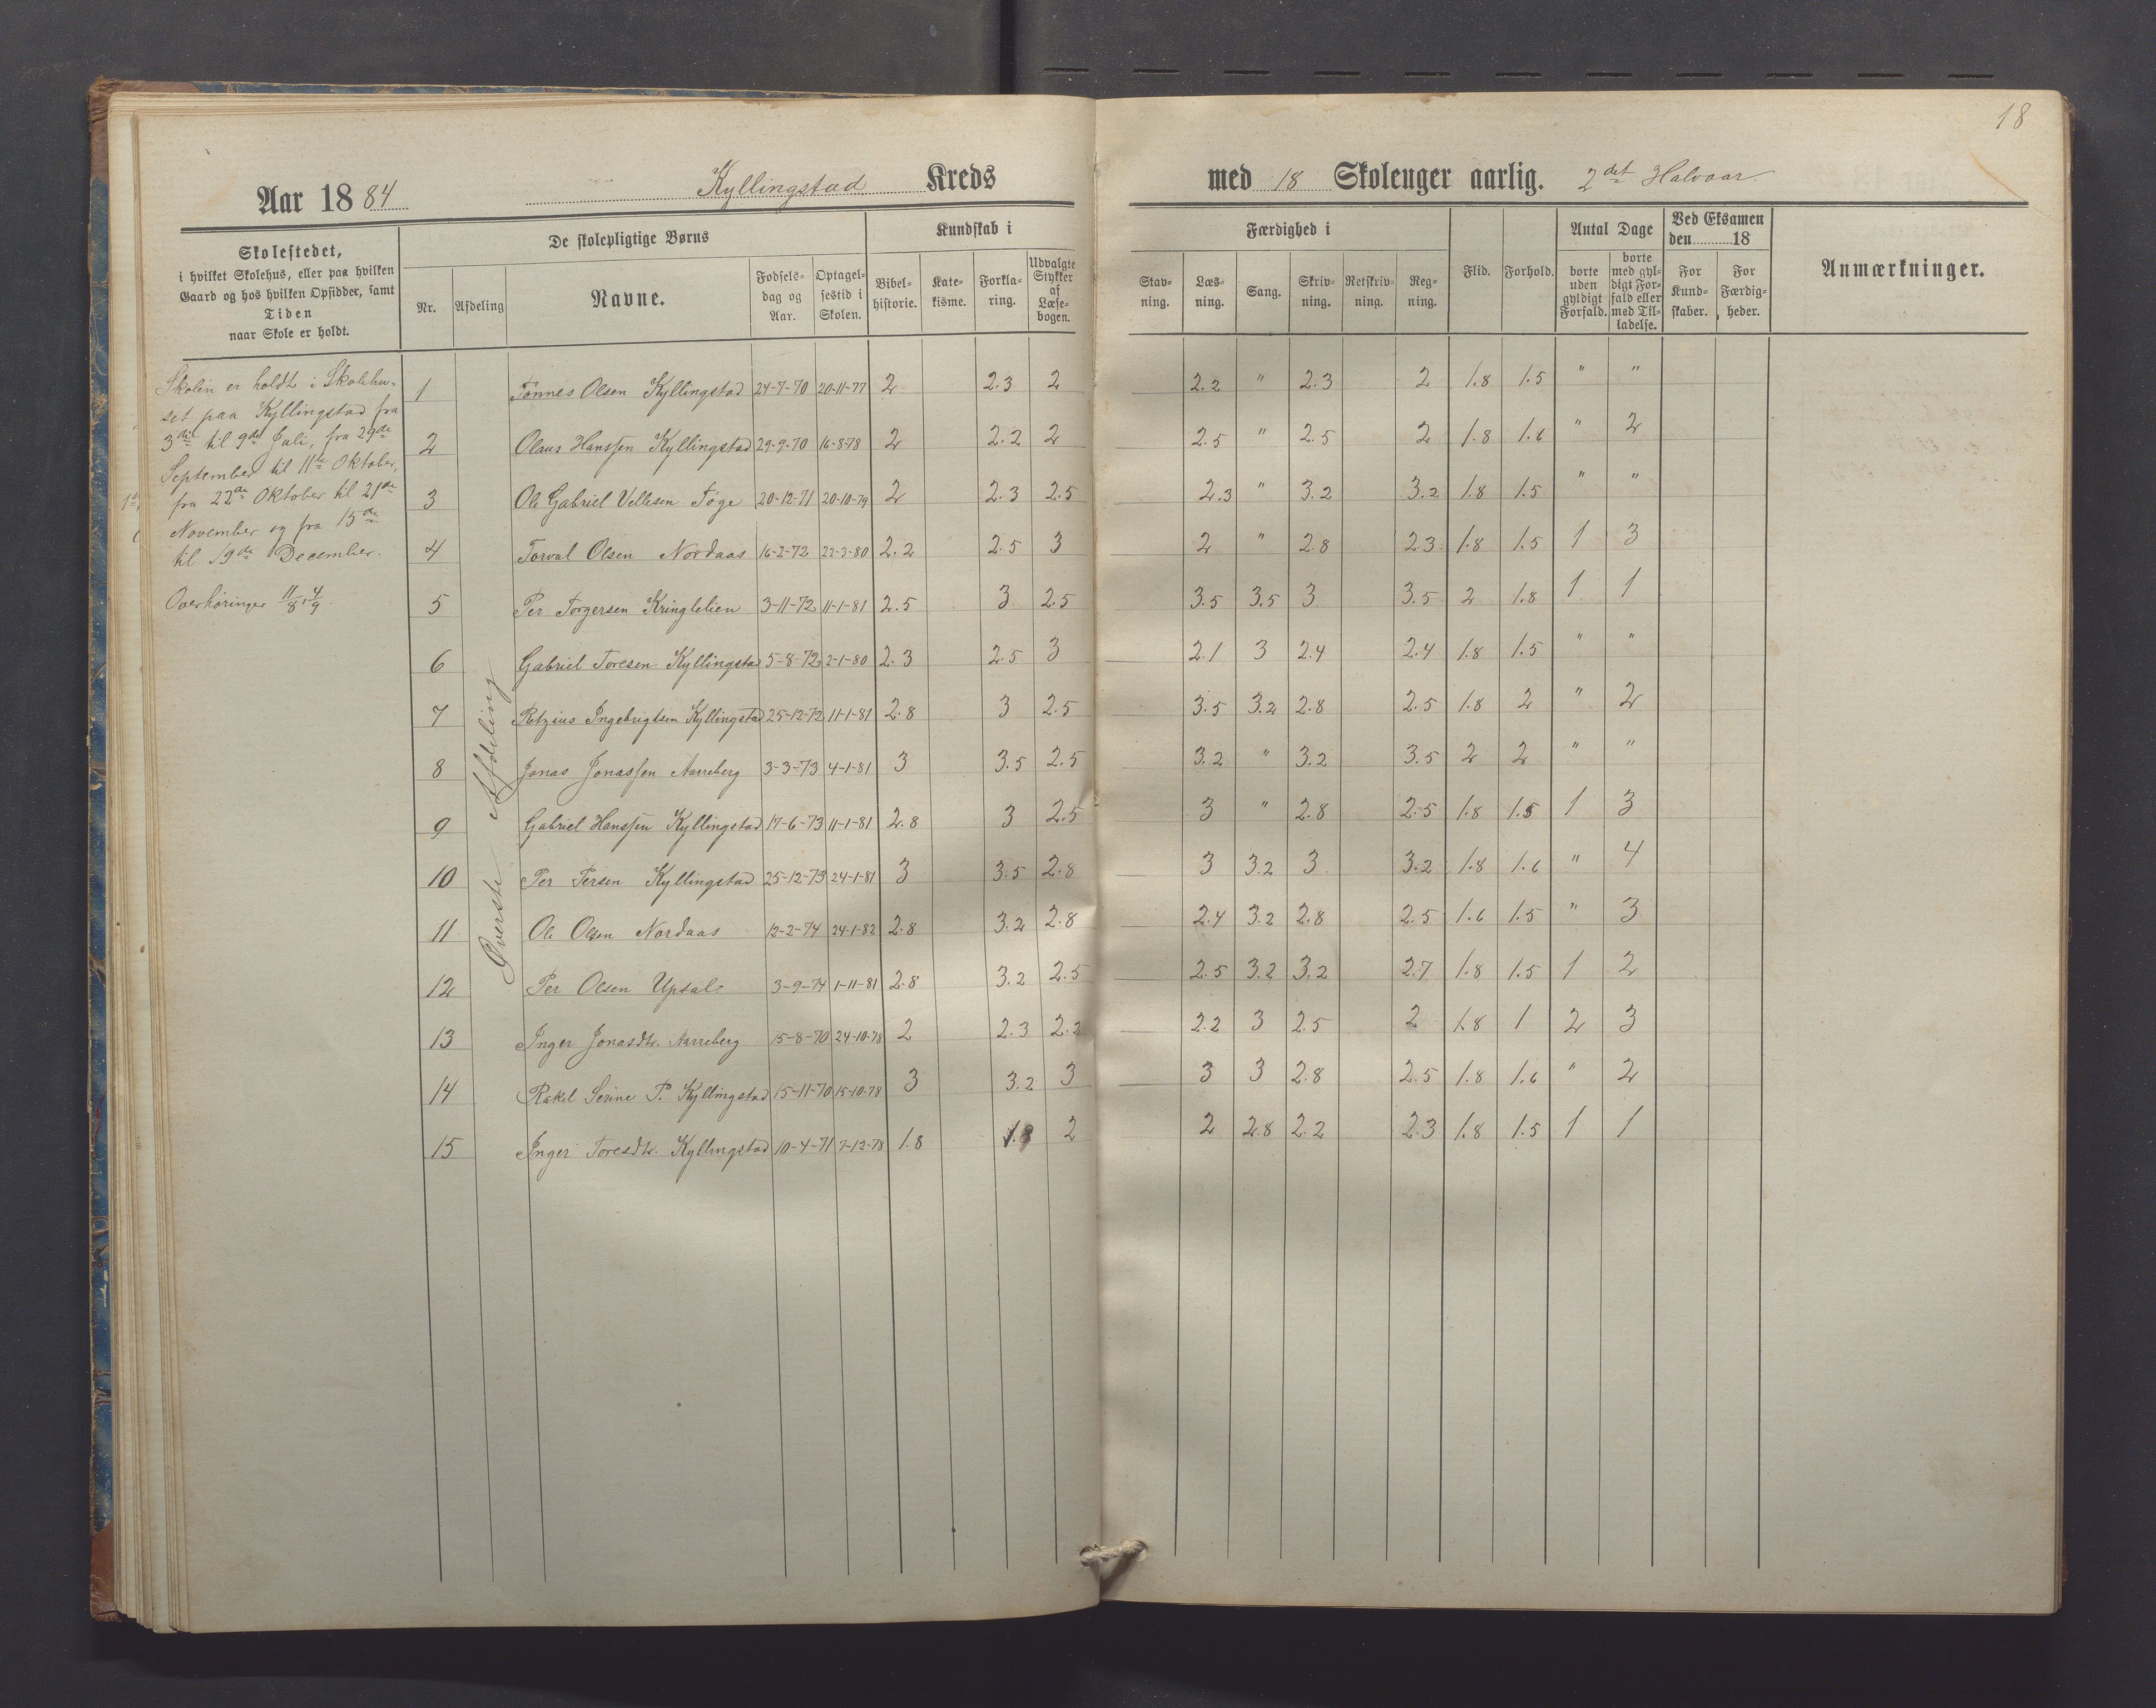 18
Aar 1884 Kyllingstad Kreds med 18 Skoleuger aarlig. 2det Halvaar.
Skolestedet,
i hvilket Skolehus, eller paa hvilken
Gaard og hos hvilken Opsidder, samt
Tiden
naar Skole er holdt.
De skolepligtige Børns
Nr. Afdeling Navne. Fødselsdag og Aar. Optagelsestid i Skolen.
Kundskab i
Bibelhistorie. Katekisme. Forklaring. Udvalgte Stykker af Læsebogen.
Færdighed i
Stavning. Læsning. Sang. Skrivning. Retskrivning. Regning.
Flid. Forhold.
Antal Dage
borte uden gyldigt Forfald. borte med gyldigt Forfald eller med Tilladelse.
Ved Eksamen
den 18
For Kundskaber. For Færdigheder.
Anmærkninger.
Skolen er holdt i Skolehu-
set paa Kyllingstad fra
3die til 9de Juli, fra 29de
September til 11te Oktober,
fra 22de Oktober til 21de
November og fra 15de
til 19de December.
Overhøringer 11/8, 4/9.
Øverste Afdeling
1 Tønnes Olsen Kyllingstad 24-7-70 20-11-77 2 2.3 2 2.2 " 2.3 2 1.8 1.5 " "
2 Olaus Hanssen Kyllingstad 29-9-70 16-8-78 2 2.2 2 2.5 " 2.5 2 1.8 1.6 " 2
3 Ole Gabriel Vellesen Tøge 20-12-71 20-10-79 2 2.3 2.5 2.3 " 3.2 3.2 1.8 1.5 " "
4 Torval Olsen Nordaas 16-2-72 22-3-80 2.2 2.5 3 2 " 2.8 2.3 1.8 1.5 1 3
5 Per Torgersen Kringlelien 3-11-72 11-1-81 2.5 3 2.5 3.5 3.5 3 3.5 2 1.8 1 1
6 Gabriel Toresen Kyllingstad 5-8-72 2-1-80 2.3 2.5 3 2.1 3 2.4 2.4 1.8 1.5 " "
7 Retzius Ingebrigtsen Kyllingstad 25-12-72 11-1-81 2.8 3 2.5 3.5 3.2 2.8 2.5 1.8 2 " 2
8 Jonas Jonassen Aarreberg 3-3-73 4-1-81 3 3.5 2.5 3.2 " 3.2 3.5 2 2 " "
9 Gabriel Hanssen Kyllingstad 17-6-73 11-1-81 2.8 3 2.5 3 " 2.8 2.5 1.8 1.5 1 3
10 Per Persen Kyllingstad 25-12-73 24-1-81 3 3.5 2.8 3 3.2 3 3.2 1.8 1.6 " 4
11 Ole Olsen Nordaas 12-2-74 24-1-82 2.8 3.2 2.8 2.4 3.2 2.8 2.5 1.6 1.5 " 3
12 Per Olsen Upsal 3-9-74 1-11-81 2.8 3.2 2.5 2.5 3.2 3.2 2.7 1.8 1.5 1 2
13 Inger Jonasdtr. Aarreberg 15-8-70 24-10-78 2 2.3 2.2 2.2 3 2.5 2 1.8 1 2 3
14 Rakel Serine P. Kyllingstad 15-11-70 15-10-78 3 3.2 3 3 3 2.8 2.5 1.8 1.6 " 2
15 Inger Toresdtr. Kyllingstad 10-4-71 7-12-78 1.8 1.8 2 2 2.8 2.2 2.3 1.8 1.5 1 1